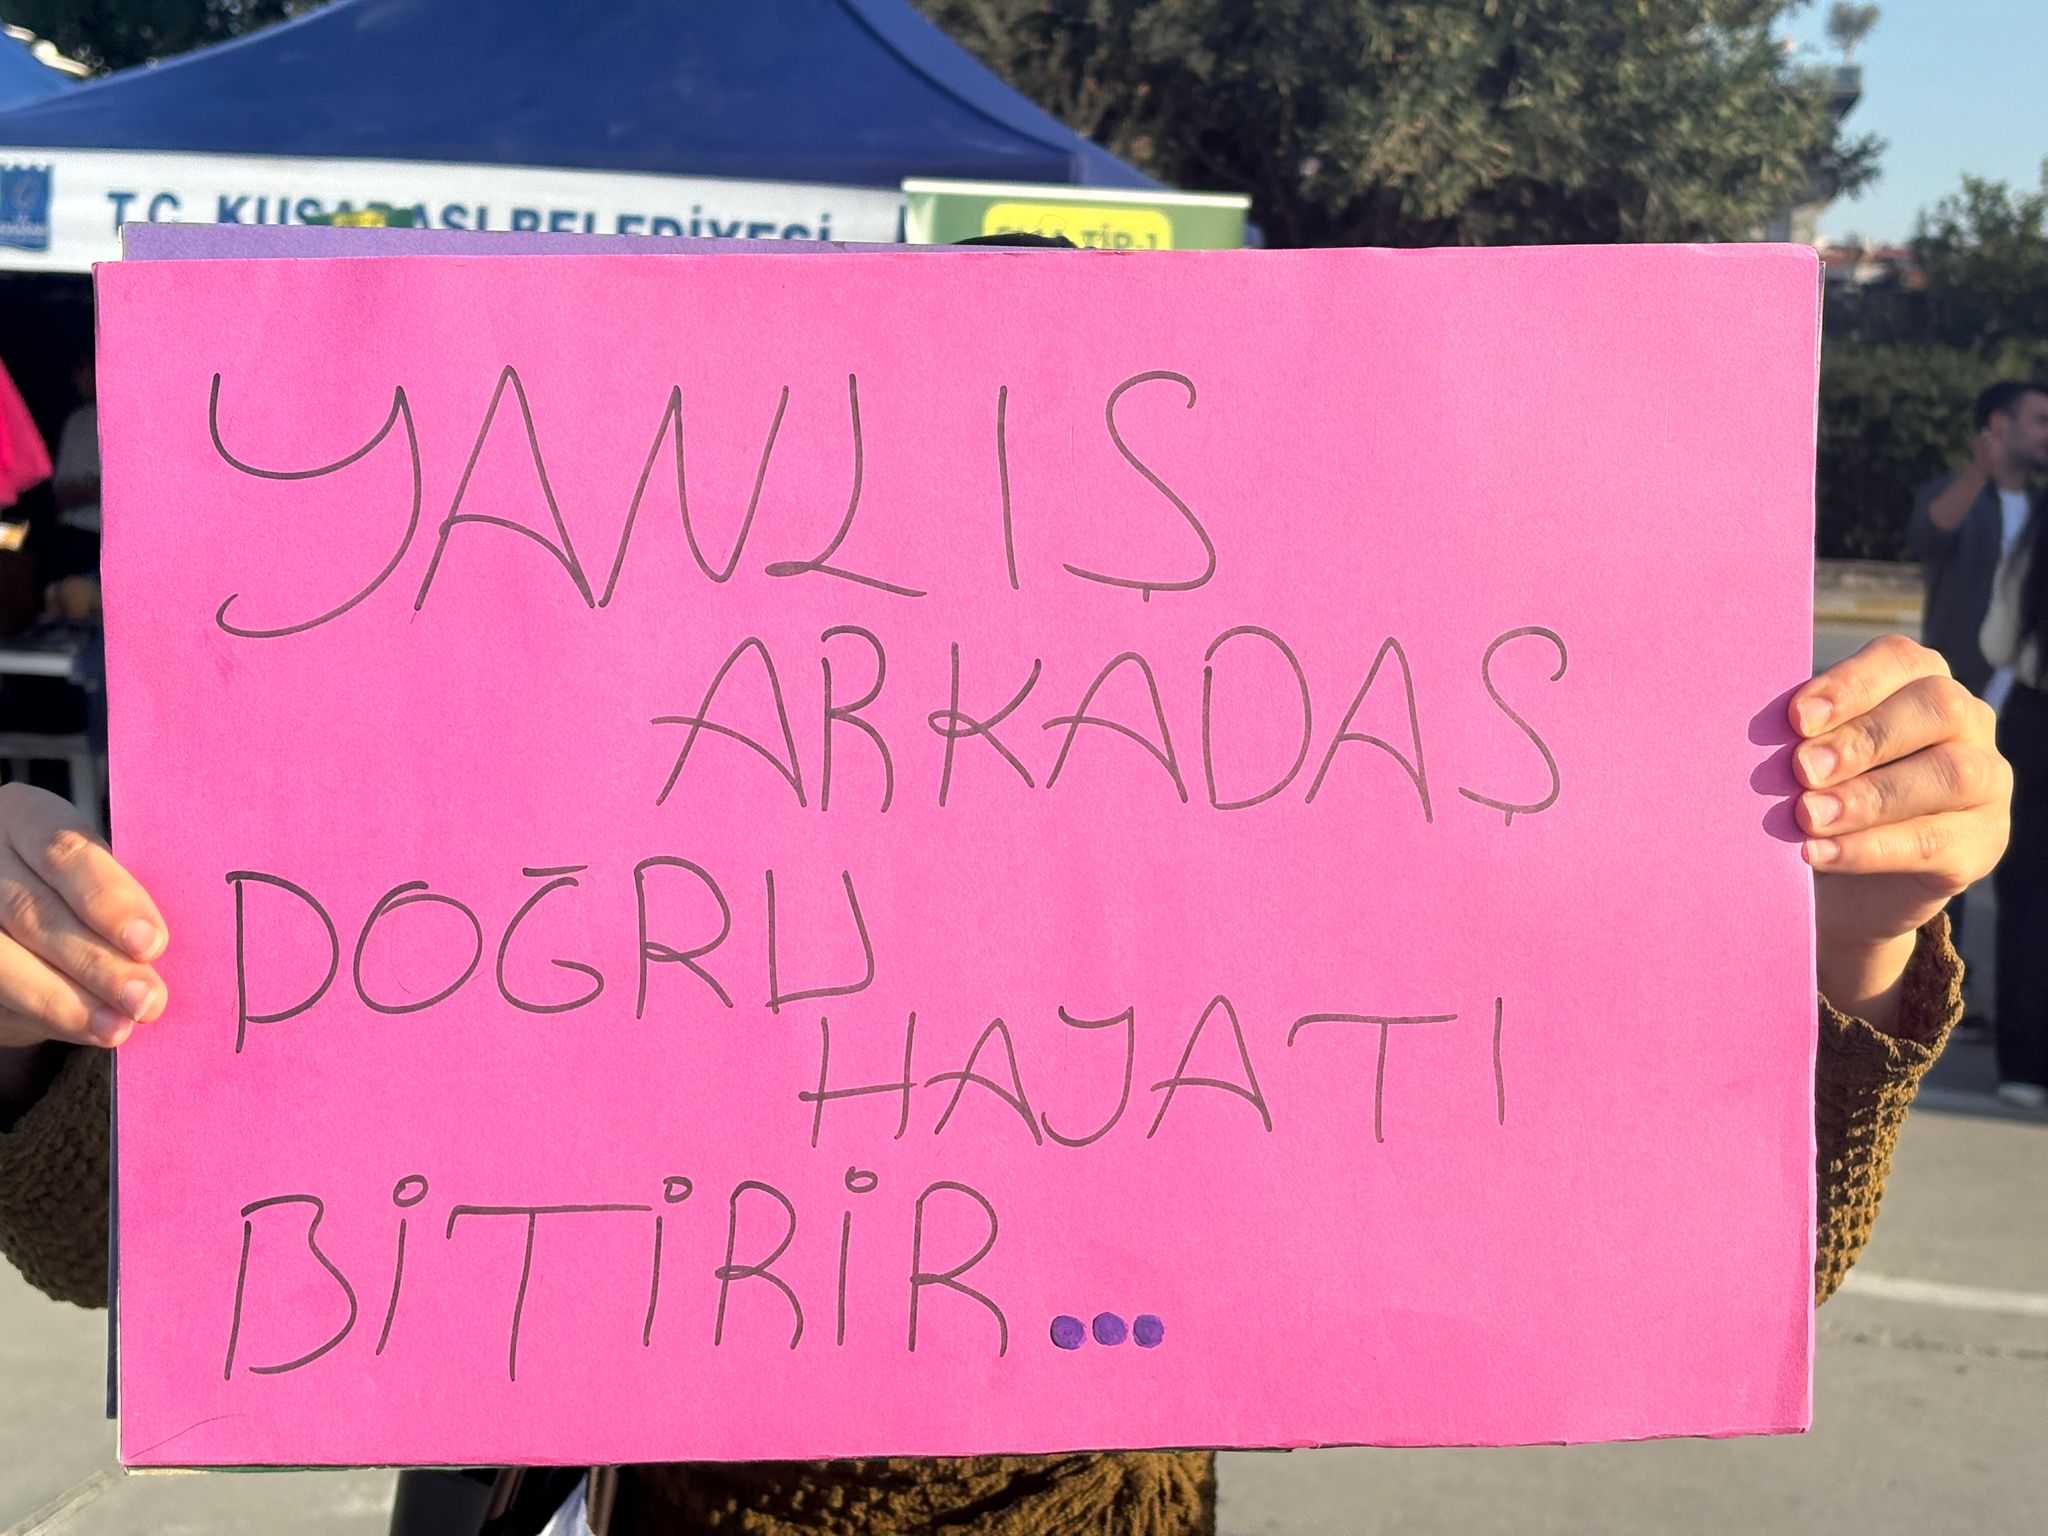 T.C. KUŞADASI BELEDİYESİ
YANLIŞ
ARKADAŞ
DOĞRU
HAYATI
BİTİRİR...